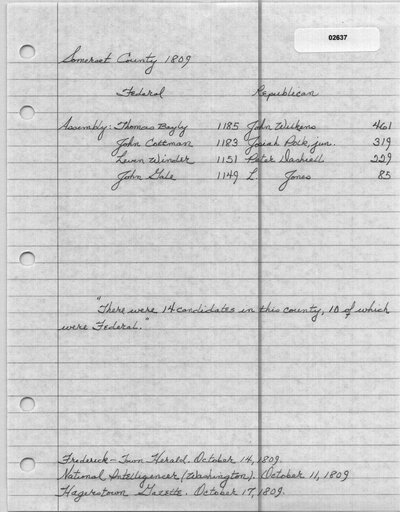 02637
Somerset County 1809
Federal Republican
Assembly: Thomas Bayly 1185 John Wilkens 461
John Cottman 1183 Josiah Polk, jun. 319
Leven Winder 1151 Peter Dashiell 229
John Gale 1149 L. Jones 85
"There were 14 candidates in this county, 10 of which
were Federal."
Frederick-Town Herald. October 14, 1809.
National Intelligencer (Washington). October 11, 1809
Hagerstown Gazette. October 17, 1809.